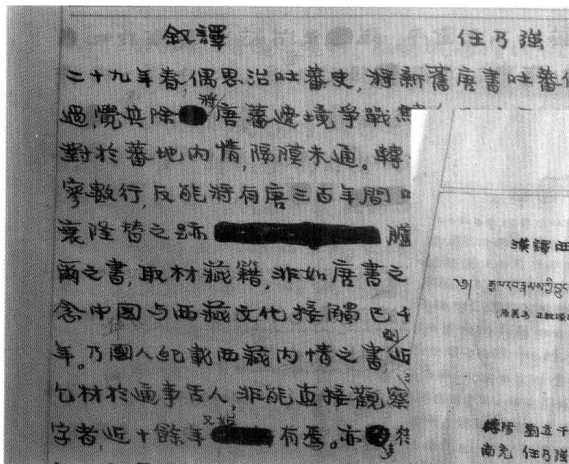 叙譯 任乃強
二十九年春,偶思治吐蕃史,將新舊唐書吐蕃
過,覺其除將唐蕃邊境爭戰
對於蕃地內情,隔膜未通。轉
寥數行,反能將有唐三百年間
衰陞替之跡
爾之書,取材藏籍,非如唐書之
念中國与西藏文化接觸已
年。乃國人紀載西藏內情之書,
乞材於通事舌人,非能直接觀察
字者,近十餘年又始有焉。亦
漢譯
劉立千
南充 任乃強